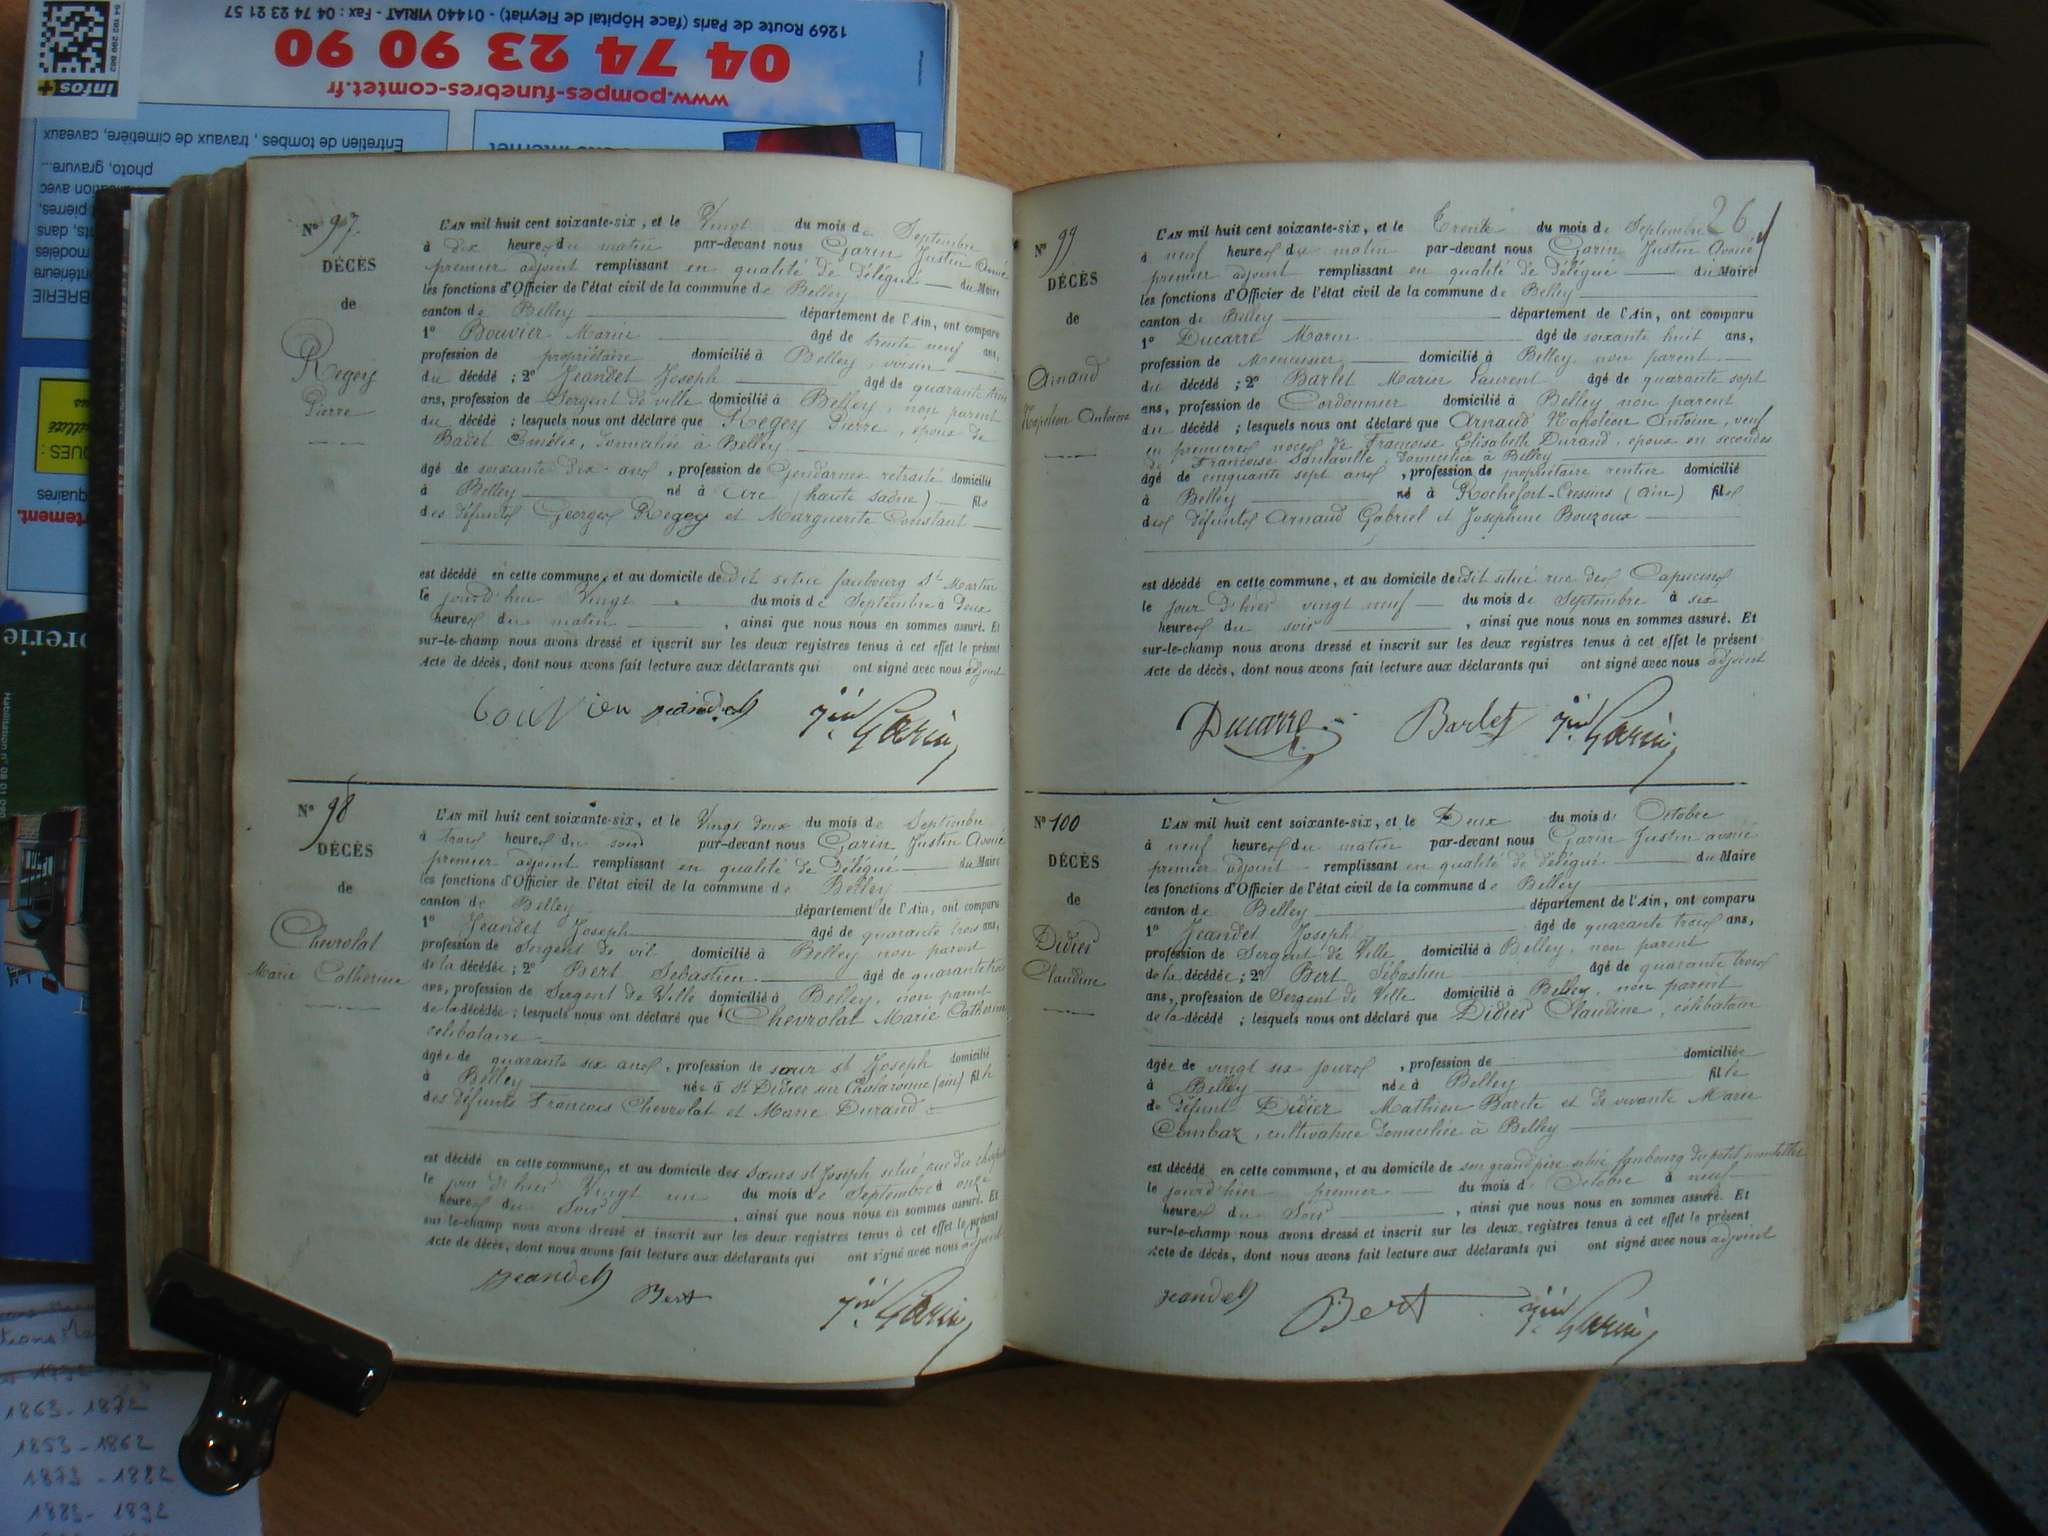 1269 Route de Paris (face Hôpital de Fleyriat) - 01440 VIRIAT - Fax : 04 74 23 21 57
04 74 23 90 90
www.pompes-funebres-comtet.fr
infos+
Entretien de tombes, travaux de cimetière, caveaux
photo, gravure...
N° 97.
DÉCÈS
de
Regey
Pierre
L'AN mil huit cent soixante-six, et le Vingt du mois de Septembre
à dix heures du matin par-devant nous Garin Justin Avoué
premier adjoint remplissant en qualité de délégué du Maire
les fonctions d'Officier de l'état civil de la commune de Belley
canton de Belley département de l'Ain, ont comparu
1° Bouvier Marin âgé de trente neuf ans,
profession de propriétaire domicilié à Belley, voisin
du décédé ; 2° Jeandet Joseph âgé de quarante trois
ans, profession de Sergent de ville domicilié à Belley, non parent
du décédé ; lesquels nous ont déclaré que Regey Pierre, époux de
Badet Emélie, domiciliée à Belley
âgé de soixante dix ans, profession de Gendarme retraité domicilié
à Belley né à Arc (haute saône) fils
des défunts Georges Regey et Marguerite Constant
est décédé en cette commune, et au domicile de dit situé faubourg St Martin
le jourd'hui Vingt du mois de Septembre à Deux
heures du matin, ainsi que nous nous en sommes assuré. Et
sur-le-champ nous avons dressé et inscrit sur les deux registres tenus à cet effet le présent
Acte de décès, dont nous avons fait lecture aux déclarants qui ont signé avec nous adjoint
jeandet Jin Garin
N° 98
DÉCÈS
de
Chevrolat
Marie Catherine
L'AN mil huit cent soixante-six, et le Vingt deux du mois de Septembre
à trois heures du soir par-devant nous Garin Justin Avoué
premier adjoint remplissant en qualité de Délégué du Maire
les fonctions d'Officier de l'état civil de la commune de Belley
canton de Belley département de l'Ain, ont comparu
1° Jeandet Joseph âgé de quarante trois ans,
profession de Sergent de vil domicilié à Belley non parent
de la décédée ; 2° Bert Sébastien âgé de quarante trois
ans, profession de Sergent de Ville domicilié à Belley, non parent
de la décédée ; lesquels nous ont déclaré que Chevrolat Marie Catherine
célibataire
âgée de quarante six ans, profession de sœur St Joseph domicilié
à Belley née à St Didier sur Chalaronne (ain) fille
des défunts François Chevrolat et Marie Durand
est décédé en cette commune, et au domicile des sœurs St Joseph situé rue du
le jour d'hier Vingt un du mois de Septembre à onze
heures du Soir, ainsi que nous nous en sommes assuré. Et
sur-le-champ nous avons dressé et inscrit sur les deux registres tenus à cet effet le présent
Acte de décès, dont nous avons fait lecture aux déclarants qui ont signé avec nous adjoint
jeandet Bert Jin Garin
26
N° 99
DÉCÈS
de
Arnaud
Napoléon Antoine
L'AN mil huit cent soixante-six, et le Trente du mois de Septembre
à neuf heures du matin par-devant nous Garin Justin Avoué
premier adjoint remplissant en qualité de délégué du Maire
les fonctions d'Officier de l'état civil de la commune de Belley
canton de Belley département de l'Ain, ont comparu
1° Ducarre Marin âgé de soixante huit ans,
profession de Menuisier domicilié à Belley non parent
du décédé ; 2° Barlet Marin Laurent âgé de quarante sept
ans, profession de Cordonnier domicilié à Belley non parent
du décédé ; lesquels nous ont déclaré que Arnaud Napoléon Antoine, veuf
en premières noces de Françoise Elisabeth Durand, époux en secondes
de Françoise Santaville, domiciliée à Belley
âgé de cinquante sept ans, profession de propriétaire rentier domicilié
à Belley né à Rochefort-Cressins (ain) fils
des défunts Arnaud Gabriel et Joséphine Bouzoux
est décédé en cette commune, et au domicile de dit situé rue des Capucins
le jour d'hier vingt neuf du mois de Septembre à six
heures du soir, ainsi que nous nous en sommes assuré. Et
sur-le-champ nous avons dressé et inscrit sur les deux registres tenus à cet effet le présent
Acte de décès, dont nous avons fait lecture aux déclarants qui ont signé avec nous adjoint
Ducarre Barlet Jin Garin
N° 100
DÉCÈS
de
Didier
Claudine
L'AN mil huit cent soixante-six, et le Deux du mois d'Octobre
à neuf heures du matin par-devant nous Garin Justin avoué
premier adjoint remplissant en qualité de délégué du Maire
les fonctions d'Officier de l'état civil de la commune de Belley
canton de Belley département de l'Ain, ont comparu
1° Jeandet Joseph âgé de quarante trois ans,
profession de Sergent de Ville domicilié à Belley, non parent
de la décédée ; 2° Bert Sébastien âgé de quarante trois
ans, profession de Sergent de Ville domicilié à Belley, non parent
de la décédé ; lesquels nous ont déclaré que Didier Claudine, célibataire
âgée de vingt six jours, profession de domiciliée
à Belley née à Belley fille
de défunt Didier Mathieu Barete et de vivante Marie
Combaz, cultivatrice domiciliée à Belley
est décédé en cette commune, et au domicile de son grand père situé faubourg du petit
le jourd'hier premier du mois d'Octobre à neuf
heures du Soir, ainsi que nous nous en sommes assuré. Et
sur-le-champ nous avons dressé et inscrit sur les deux registres tenus à cet effet le présent
Acte de décès, dont nous avons fait lecture aux déclarants qui ont signé avec nous adjoint
jeandet Bert Jin Garin
1863 - 1872
1853 - 1862
1873 - 1882
1883 - 1892